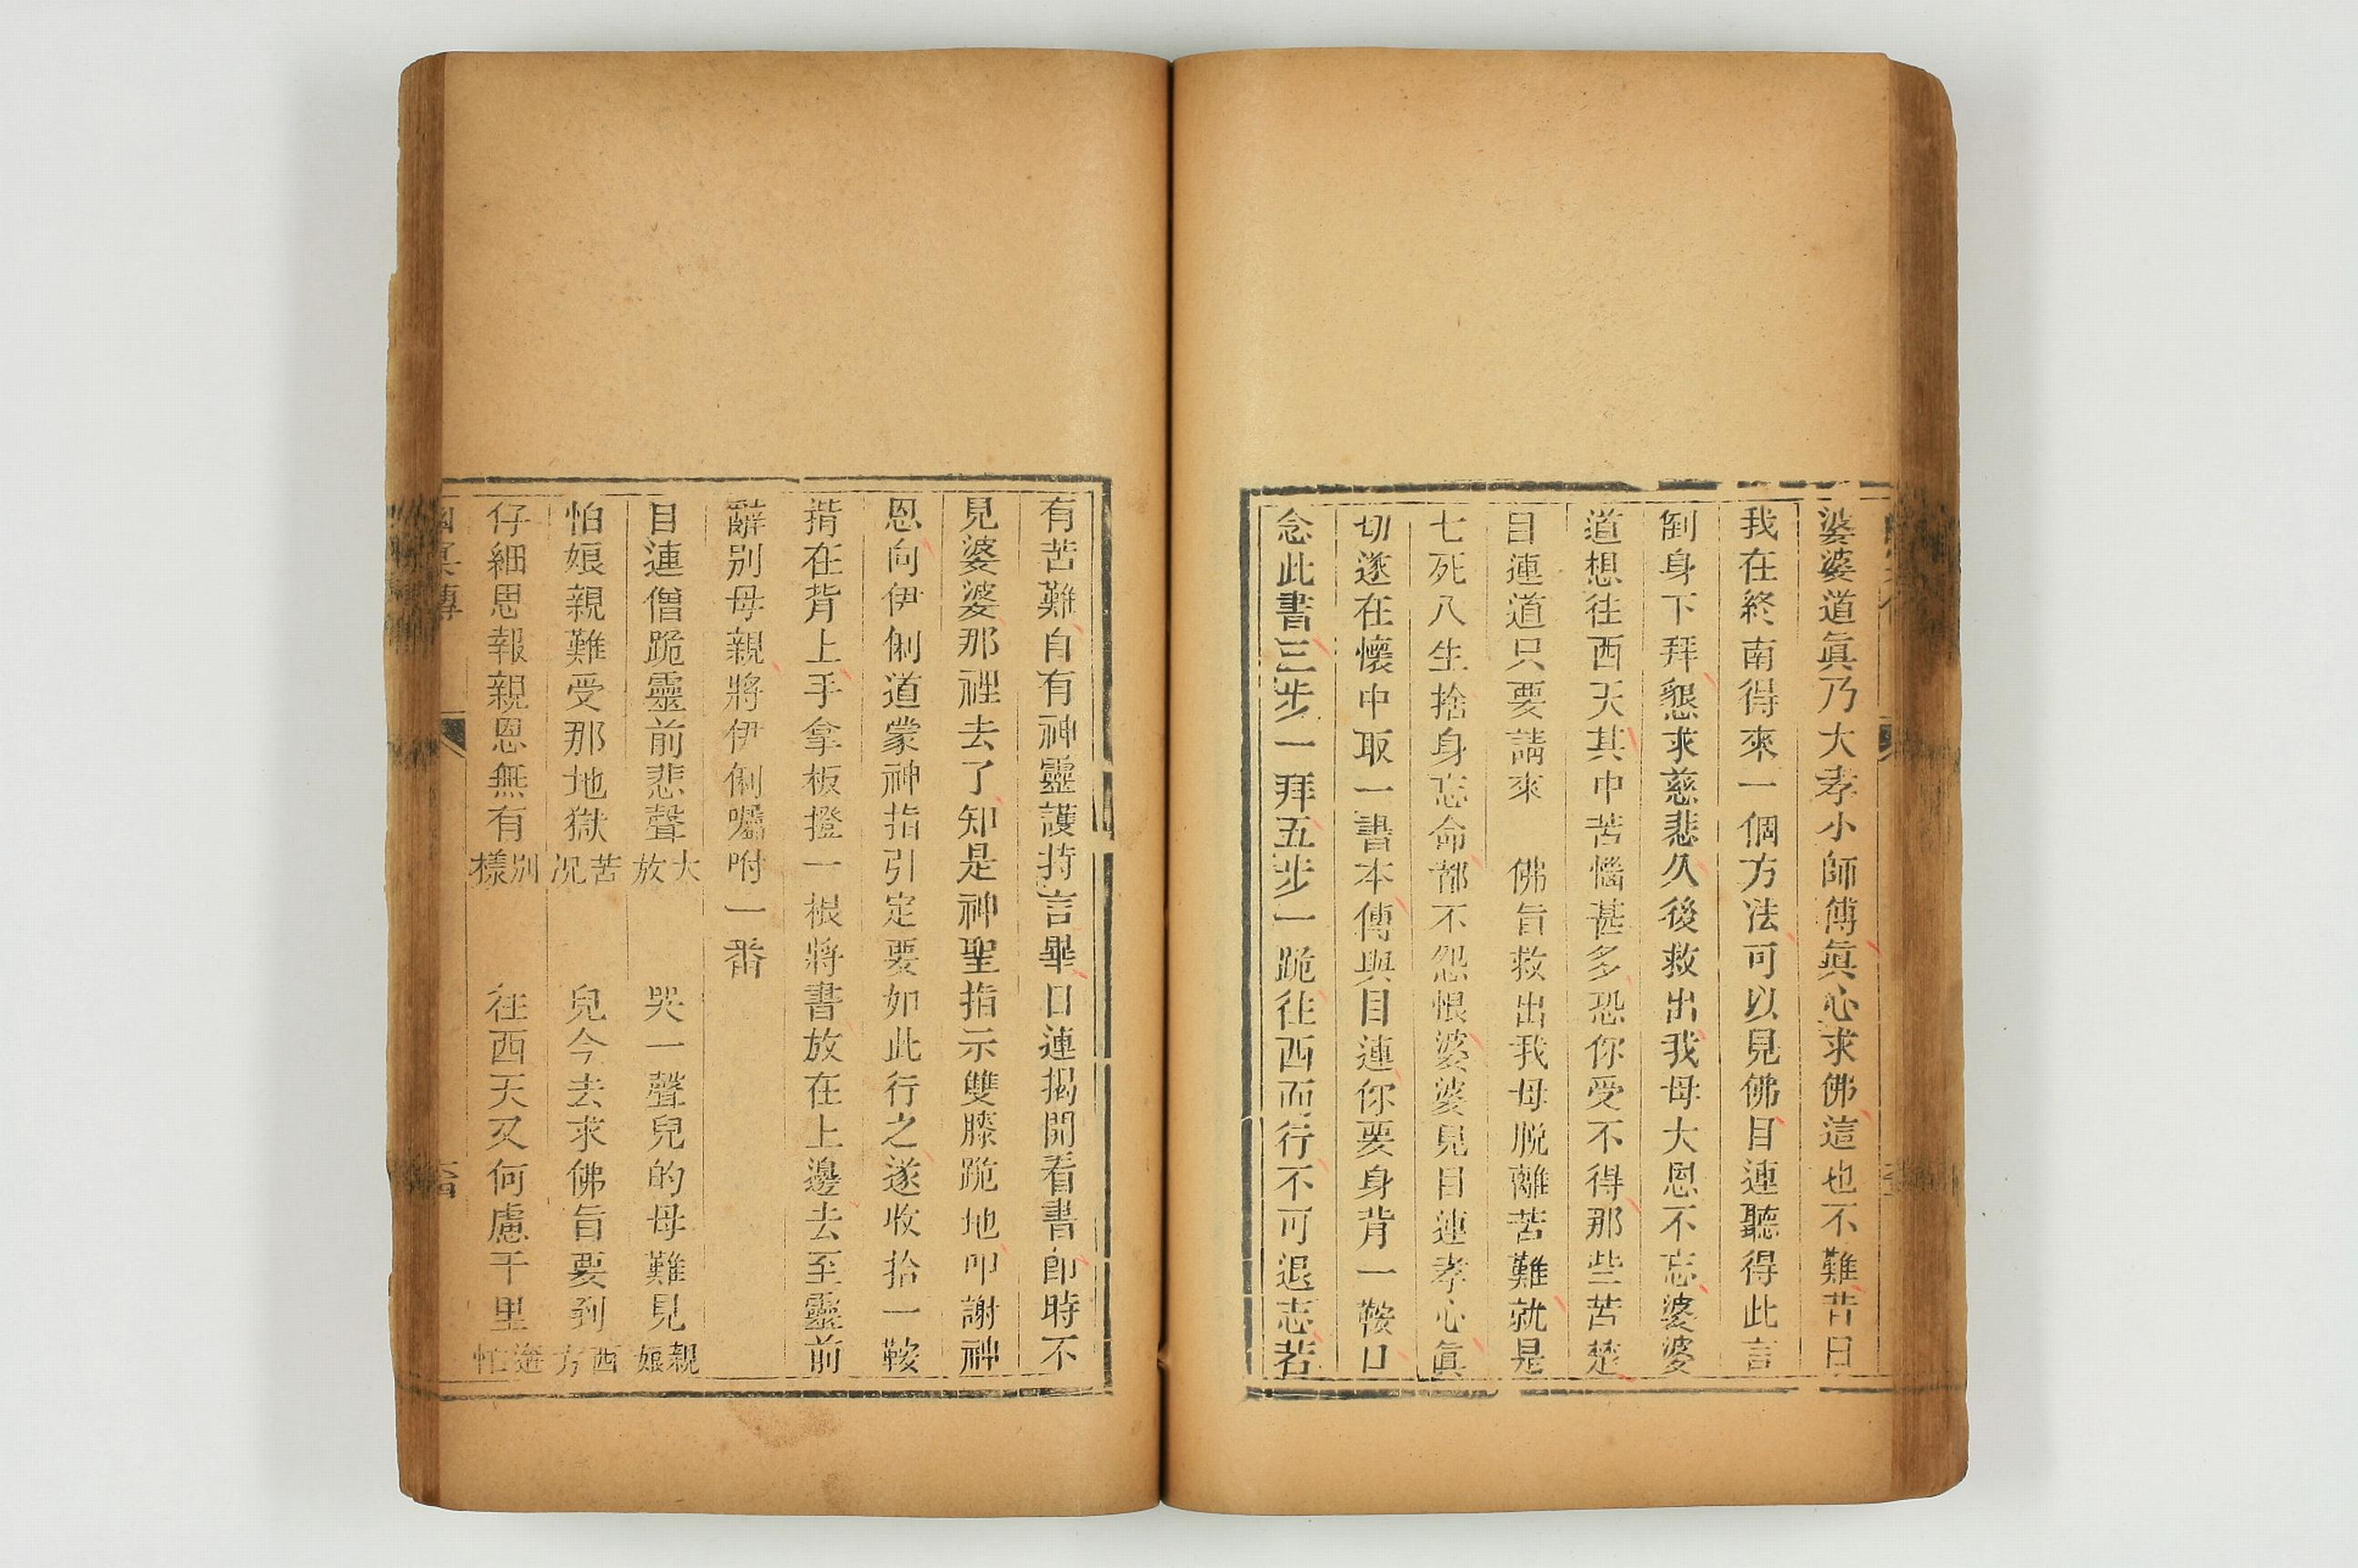 婆婆道眞乃大孝小師傅眞心求佛這也不難昔日
我在終南得來一個方法可以見佛目連聽得此言
倒身下拜懇求慈悲久後救出我母大恩不忘婆婆
道想往西天其中苦惱甚多恐你受不得那些苦楚
目連道只要請來　佛旨救出我母脫離苦難就是
七死八生捨身忘命都不怨恨婆婆見目連孝心眞
切遂在懷中取一書本傳與目連你要身背一鞍口
念此書三步一拜五步一跪往西而行不可退志若
有苦難自有神靈護持言畢目連揭開看書卽時不
見婆婆那裡去了知是神聖指示雙膝跪地叩謝神
恩向伊俐道蒙神指引定要如此行之遂收拾一鞍
揹在背上手拿板凳一根將書放在上邊去至靈前
辭別母親將伊俐囑咐一番
目連僧跪靈前悲聲大放　哭一聲兒的母難見親娘
怕娘親難受那地獄苦况　兒今去求佛旨要到西方
仔細思報親恩無有別樣　往西天又何慮千里遙怕
幽冥傳